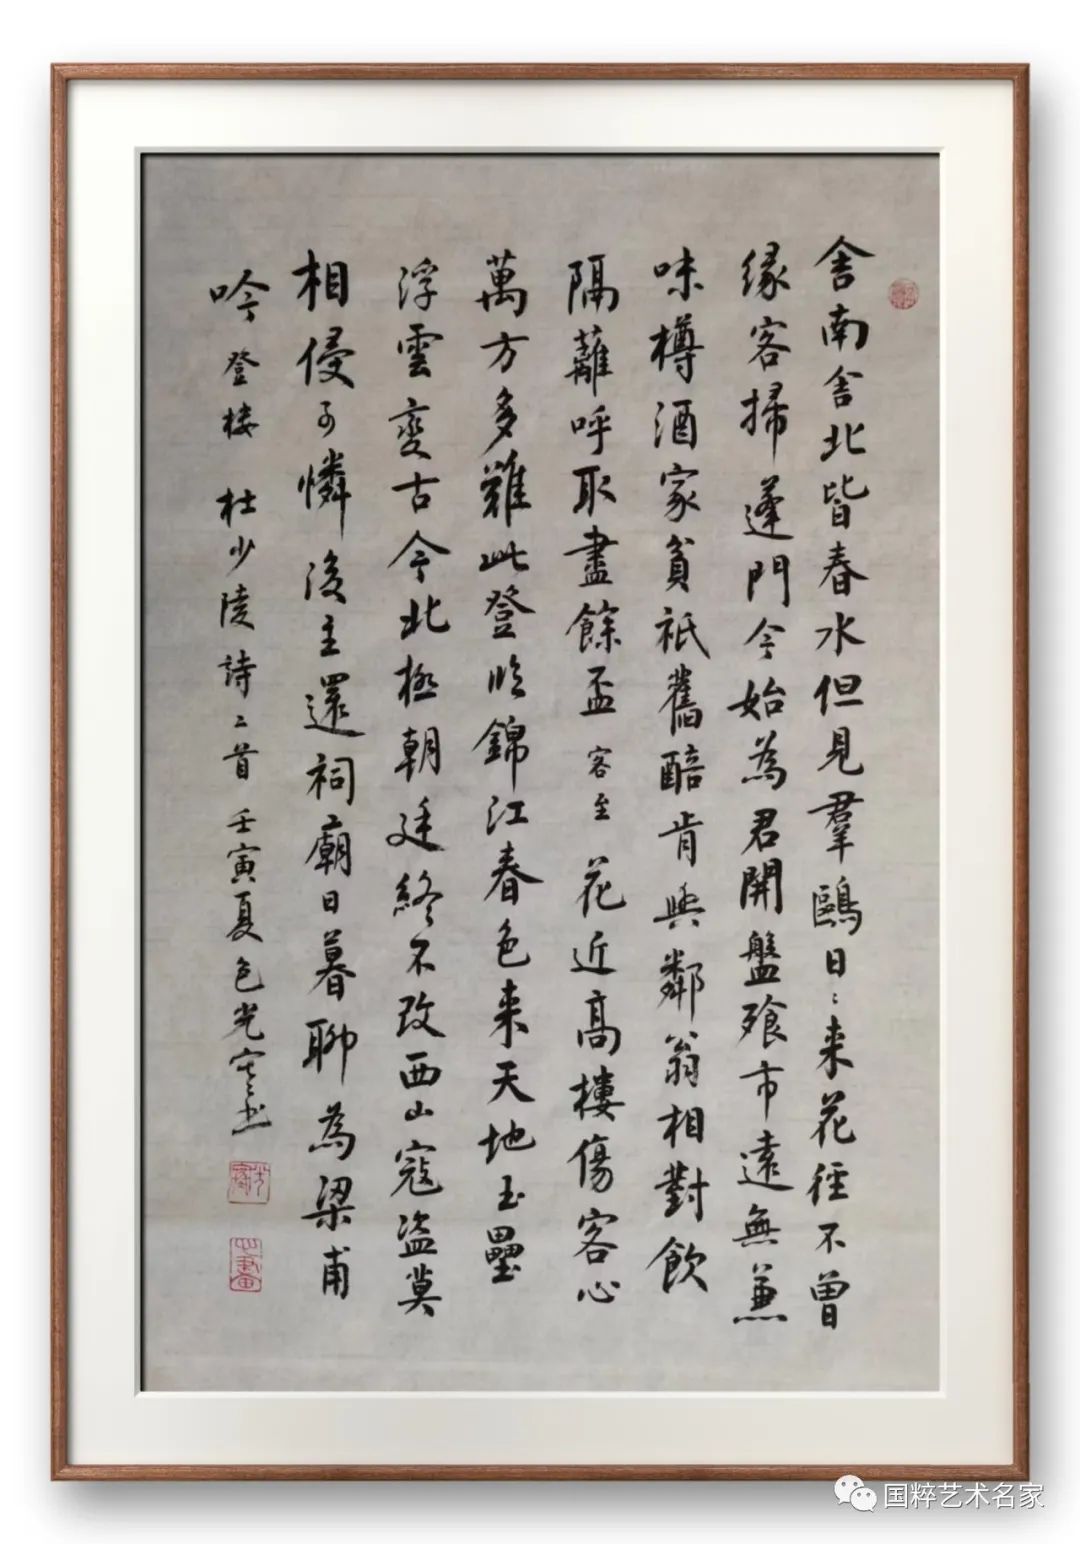 舍南舍北皆春水但見羣鷗日〻来花徑不曾
緣客掃蓬門今始為君開盤飧市遠無兼
味樽酒家貧祇舊醅肯與鄰翁相對飲
隔蘺呼取盡餘盃 客至 花近高樓傷客心
萬方多難此登臨錦江春色来天地玉壘
浮雲變古今北極朝廷終不改西山寇盜莫
相侵可憐後主還祠廟日暮聊為梁甫
吟 登楼 杜少陵詩二首 壬寅夏包光寒书
国粹艺术名家